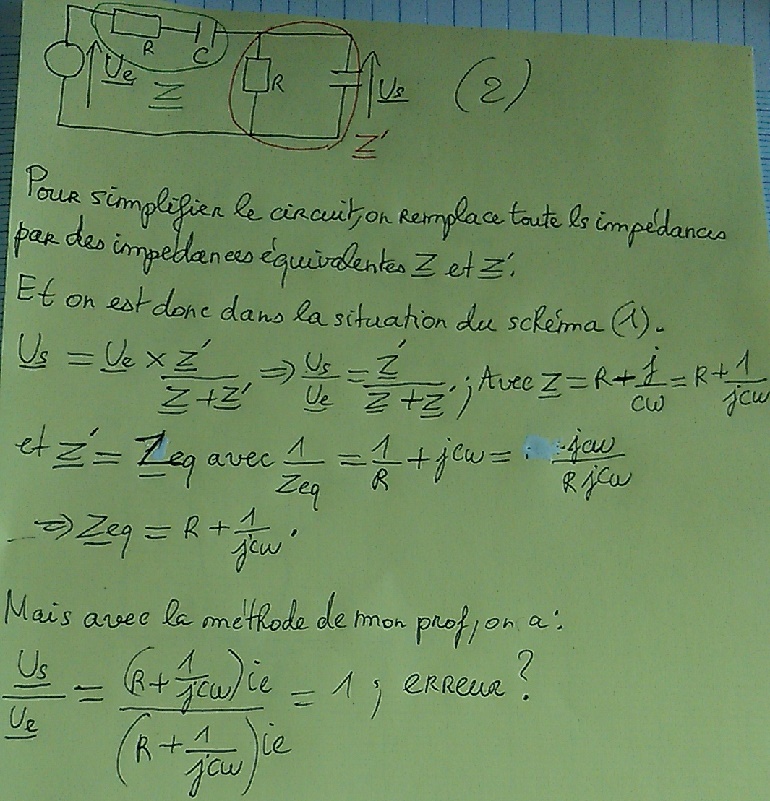 R C R
Ue Z Us (2)
Z'
Pour simplifier le circuit, on remplace toute ls impédances
par des impédances équivalentes Z et Z'.
Et on est donc dans la situation du schéma (1).
Us = Ue × Z'/(Z+Z') => Us/Ue = Z'/(Z+Z') ; Avec Z = R + j/(Cω) = R + 1/(jCω)
et Z' = Zeq avec 1/Zeq = 1/R + jCω = jCω/(RjCω)
=> Zeq = R + 1/(jCω).
Mais avec la méthode de mon prof, on a :
Us/Ue = (R + 1/(jCω))ie / (R + 1/(jCω))ie = 1 ; erreur ?